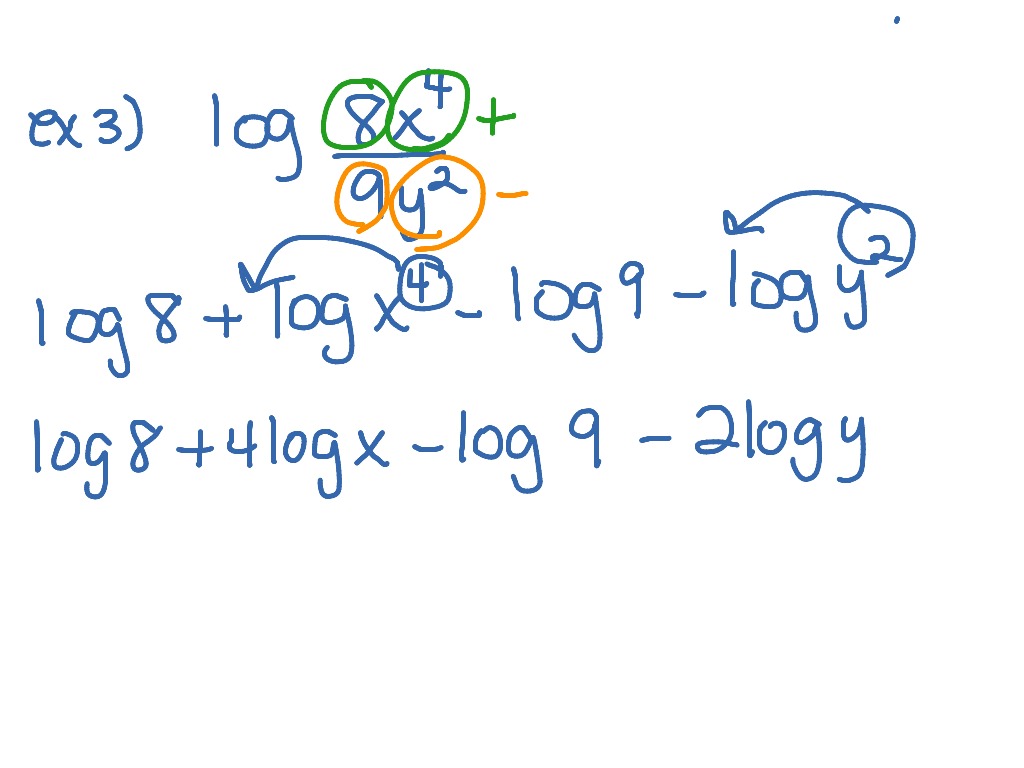 ex 3) log 8x⁴ +
9y² −
log 8 + log x⁴ - log 9 - log y²
log 8 + 4 log x - log 9 - 2 log y